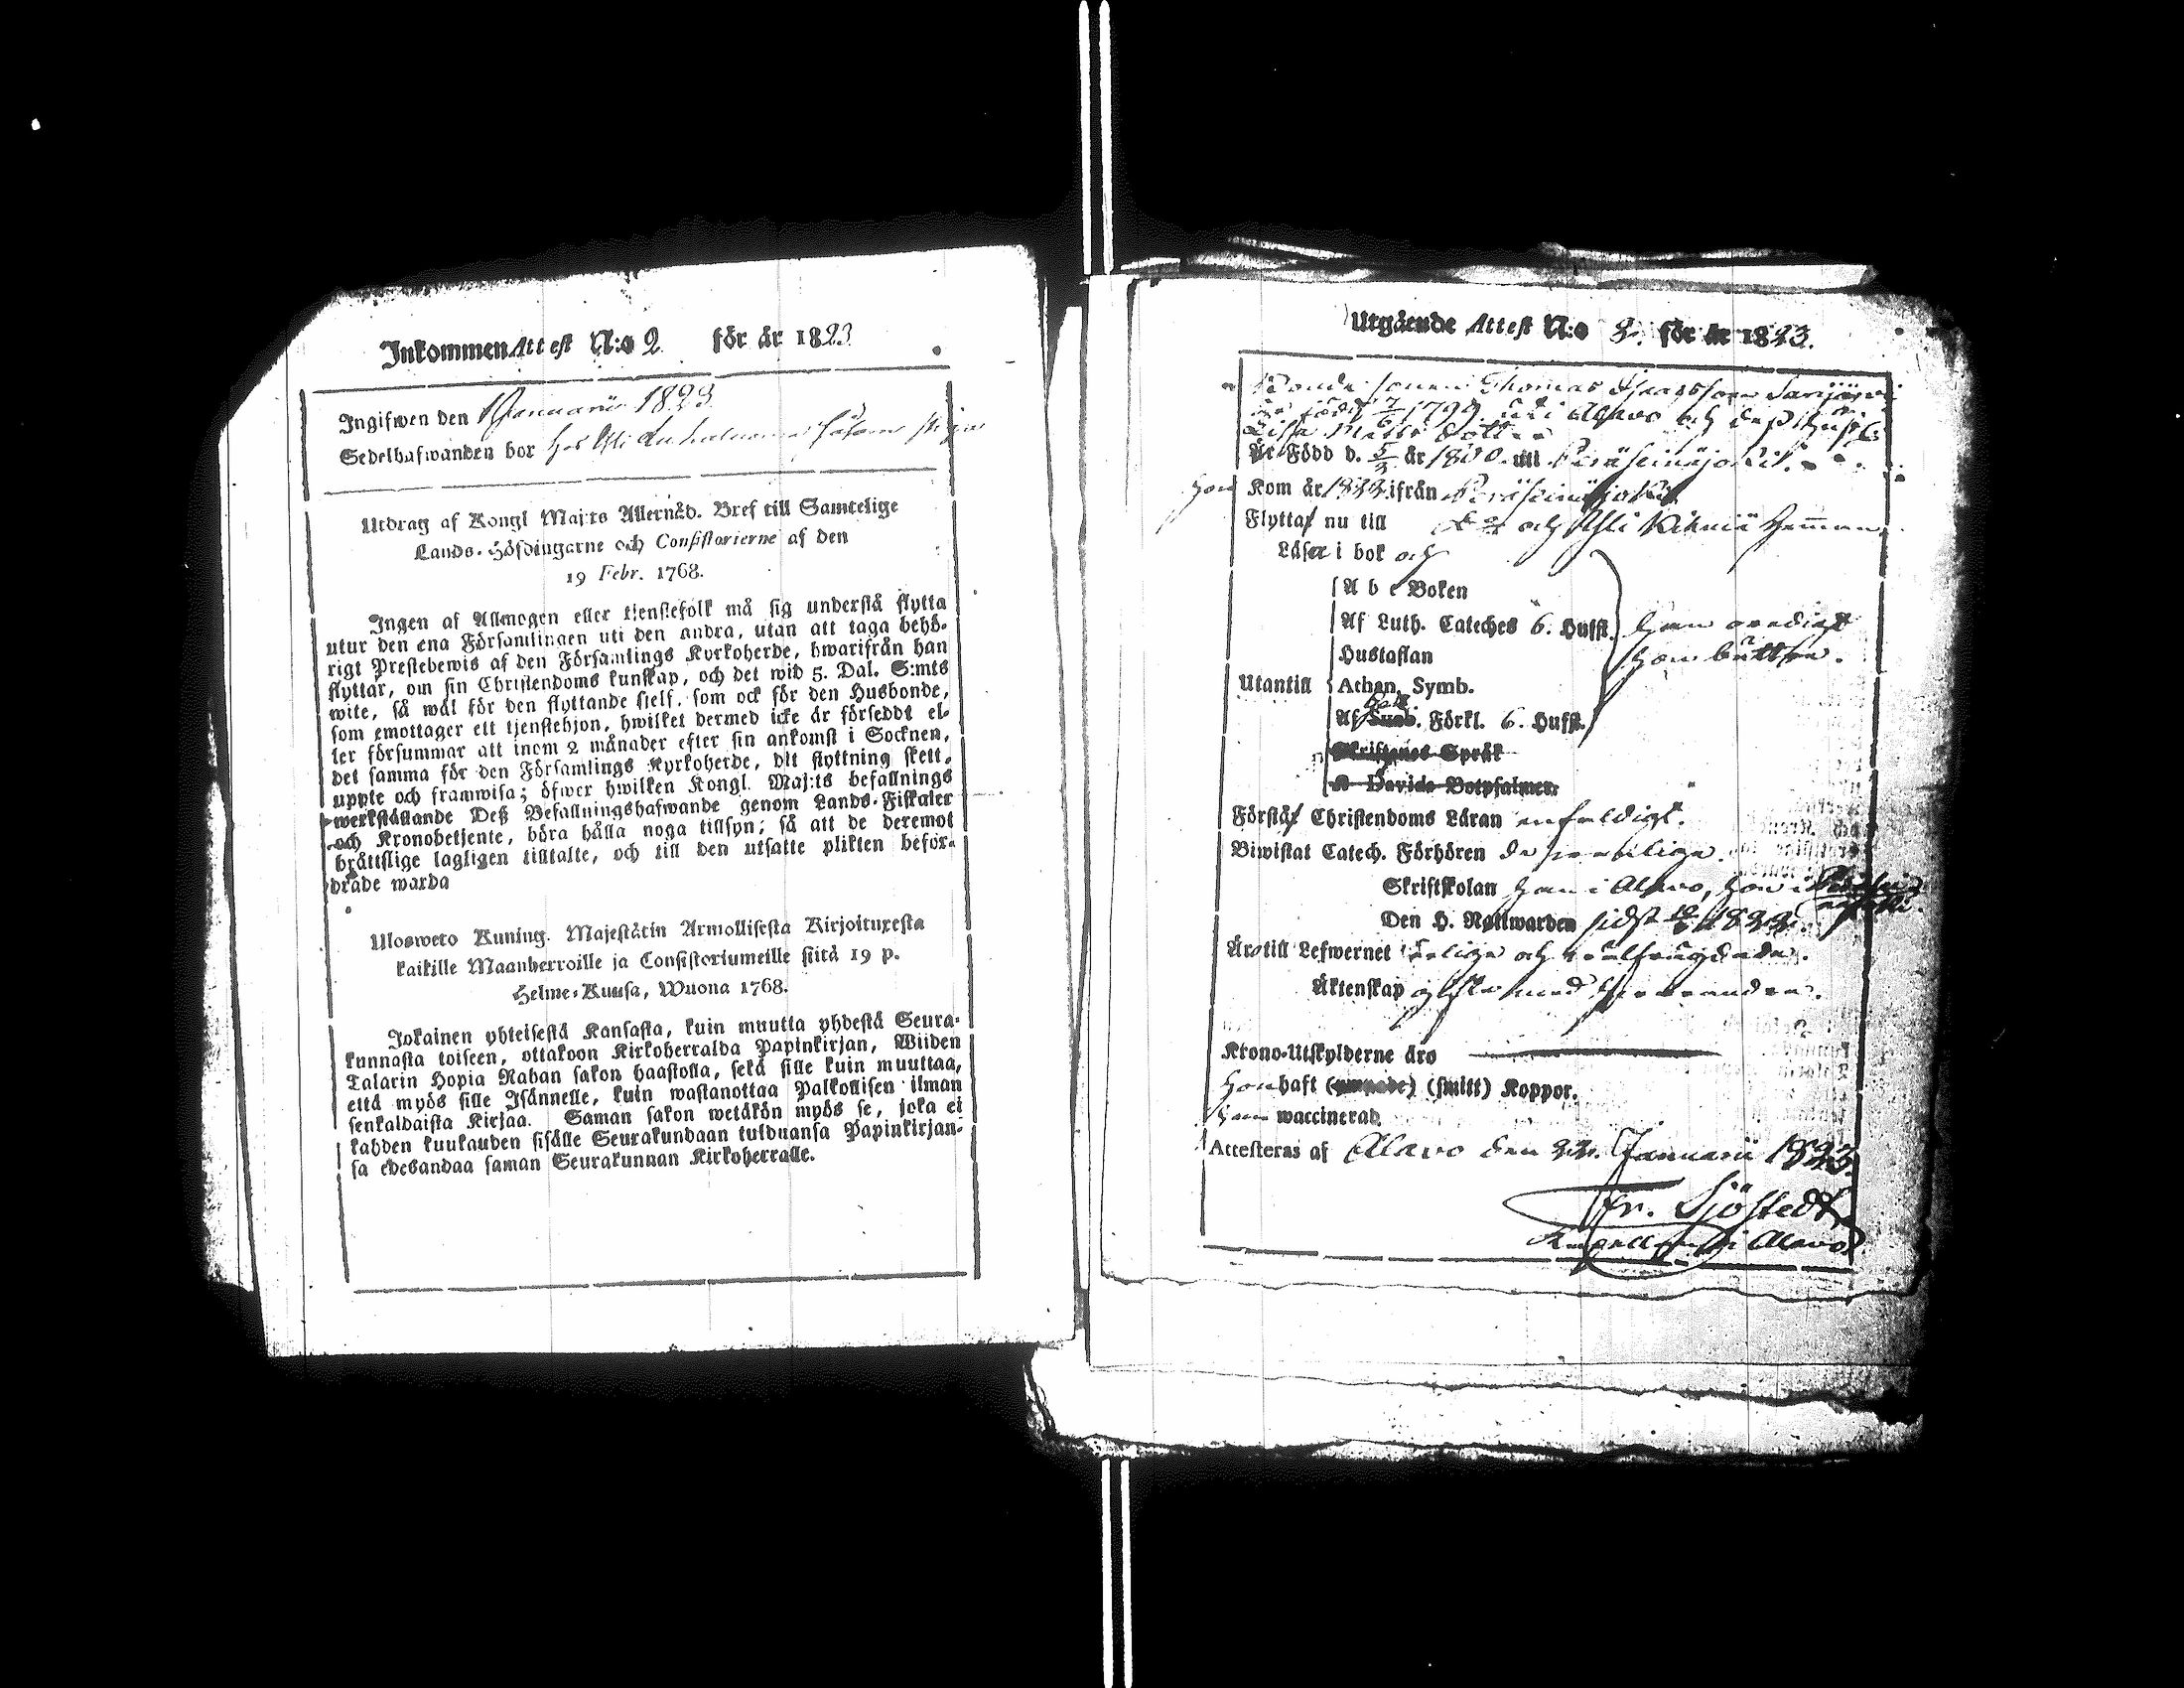 Inkommen Attest N:o 2 för år 1823
Ingifwen den 1 Januarii 1823
Sedelhafwanden bor hos
Utdrag af Kongl Maj:ts Allernåd. Bref till Samtelige
Lands-Höfdingarne och Consistorierne af den
19 Febr. 1768.
Ingen af Allmogen eller tjenstefolk må sig understå flytta
utur den ena Församlingen uti den andra, utan att taga behö-
rigt Prestebewis af den Församlings Kyrkoherde, hwarifrån han
flyttar, om sin Christendoms kunskap, och det wid 5. Dal. S:mts
wite, så wäl för den flyttande sjelf, som ock för den Husbonde,
som emottager ett tjenstehjon, hwilket dermed icke är förseddt el-
ler försummar att inom 2 månader efter sin ankomst i Socknen,
det samma för den Församlings Kyrkoherde, dit flyttning skett,
uppte och framwisa; öfwer hwilken Kongl. Maj:ts befallnings
werkställande Deß Befallningshafwande genom Lands-Fiskaler
och Kronobetjente, böra hålla noga tillsyn; så att de deremot
bråttslige lagligen tilltalte, och till den utsatte plikten befor-
drade warda
Ulosweto Kuning. Majestätin Armollisesta Kirjoituxesta
kaikille Maanherroille ja Consistoriumeille siitä 19 p.
Helme-Kuusa, Wuona 1768.
Jokainen yhteisestä Kansasta, kuin muutta yhdestä Seura-
kunnasta toiseen, ottakoon Kirkoherralda Papinkirjan, Wiiden
Talarin Hopia Rahan sakon haastolla, sekä sille kuin muuttaa,
että myös sille Isännelle, kuin wastanottaa Palkollisen ilman
senkaldaista Kirjaa. Saman sakon wetäkön myös se, joka ei
kahden kuukauden sisälle Seurakundaan tulduansa Papinkirjan-
sa edesandaa saman Seurakunnan Kirkoherralle.
Utgående Attest N:o 3. för år 1823.
Bonde sonen Thomas Isaacsson
är född 7/6 1799 uti Alavo och dess hustru
Lisa Matts dotter
Är Född d. 5/3 år 1800. till Peräseinäjoki.
hon Kom år 1822 ifrån Peräseinäjoki
Flytta nu till och Kihniä Hemman
Läsa i bok och
A b c Boken
Af Luth. Cateches 6. Hufst. han
Hustaflan hon bättre.
Utantill Athan. Symb.
Af Förkl. 6. Hufst.
Skriftenes Språk
Davids Botpsalmer
Förstå Christendoms Läran enfaldigt.
Biwistat Catech. Förhören
Skriftskolan han i Alavo, hon i
Den H. Nattwarden sidst 1822
Äro till Lefwernet ärlige och wälfrägdade.
Äktenskap gifte med hvarandra.
Krono-Utskylderne äro
Hon haft (smitt) Koppor.
han waccinerad
Attesteras af Alavo den 22. Januarii 1823.
Fr. Sjöstedt
Kapellan i Alavo